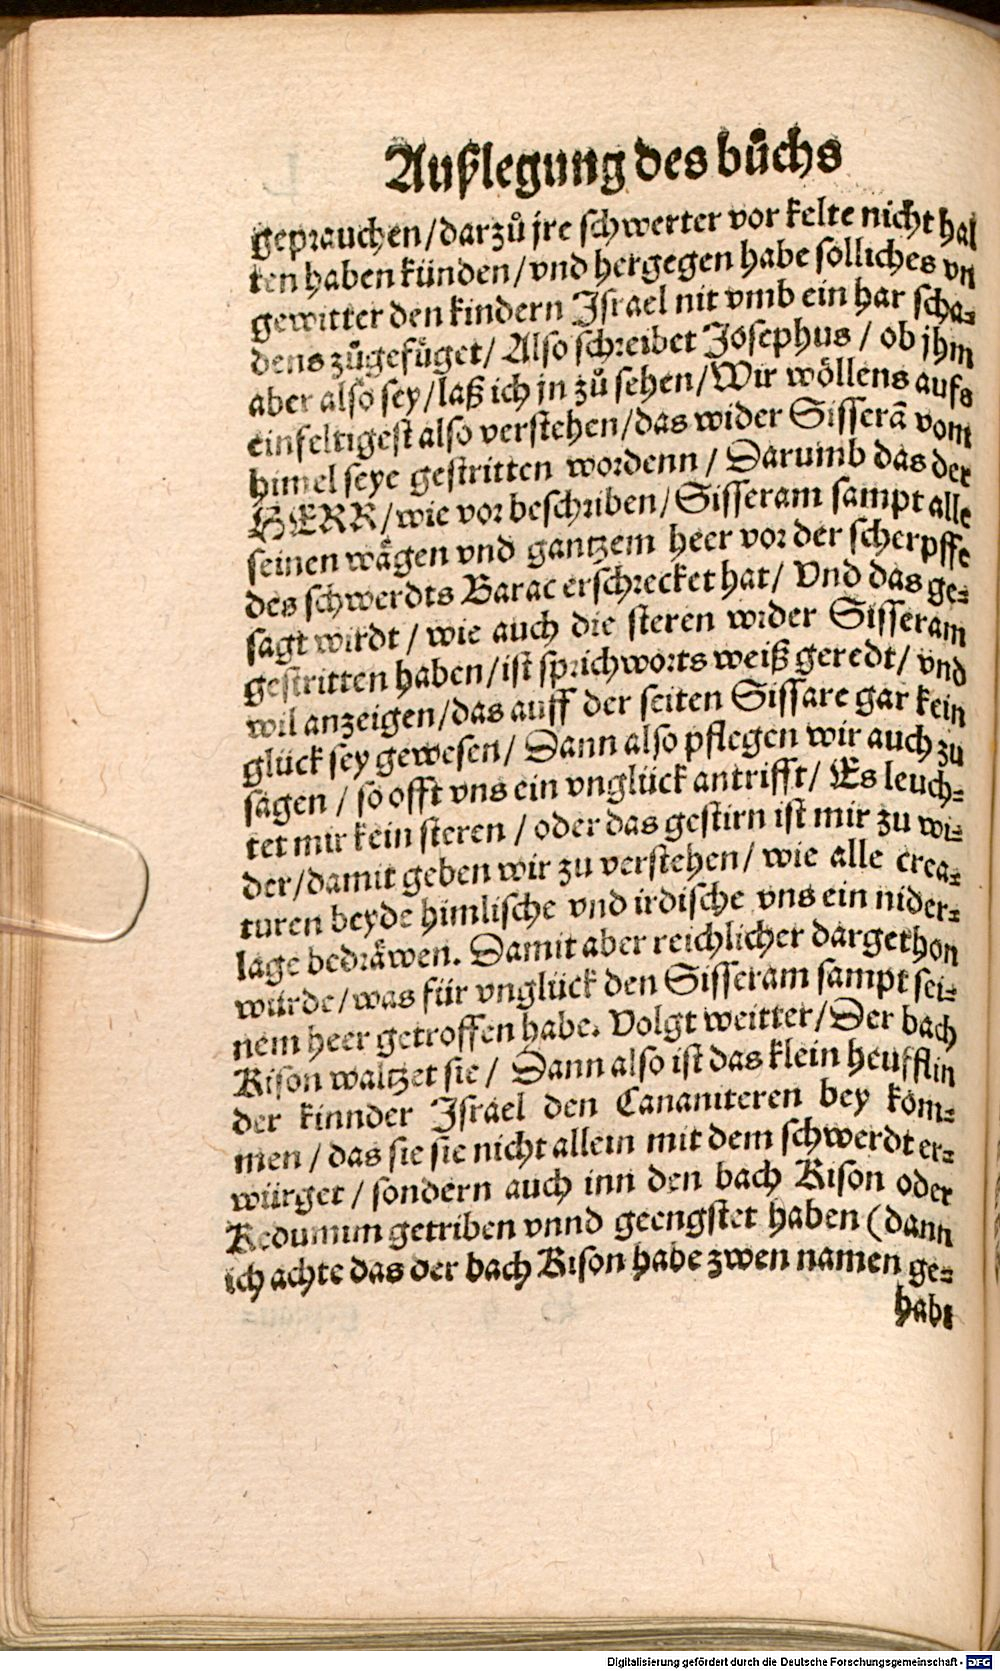 Außlegung des bůchs
geprauchen/darzů jre schwerter vor kelte nicht hal
ten haben künden/vnd hergegen habe sölliches vn
gewitter den kindern Israel nit vmb ein har scha-
dens zůgefůget/ Also schreibet Josephus / ob jhm
aber also sey/laß ich jn zů sehen/Wir wöllens aufs
einfeltigest also verstehen/das wider Sisserã vom
himel seye gestritten wordenn / Darumb das der
HERR/wie vor beschriben/Sisseram sampt alle
seinen wägen vnd gantzem heer vor der scherpffe
des schwerdts Barac erschrecket hat/ Vnd das ge-
sagt wirdt / wie auch die steren wider Sisseram
gestritten haben/ist sprichworts weiß geredt/ vnd
wil anzeigen/das auff der seiten Sissare gar kein
glück sey gewesen/ Dann also pflegen wir auch zu
sagen / so offt vns ein vnglück antrifft/ Es leuch-
tet mir kein steren / oder das gestirn ist mir zu wi-
der/damit geben wir zu verstehen/ wie alle crea-
turen beyde himlische vnd irdische vns ein nider-
lage bedräwen. Damit aber reichlicher dargethon
würde/was für vnglück den Sisseram sampt sei-
nem heer getroffen habe. Volgt weitter/Der bach
Kison waltzet sie / Dann also ist das klein heufflin
der kinnder Israel den Cananiteren bey kom-
men / das sie sie nicht allein mit dem schwerdt er-
würget / sondern auch inn den bach Kison oder
Kedumim getriben vnnd geengstet haben (dann
ich achte das der bach Kison habe zwen namen ge-
habt
Digitalisierung gefördert durch die Deutsche Forschungsgemeinschaft - DFG